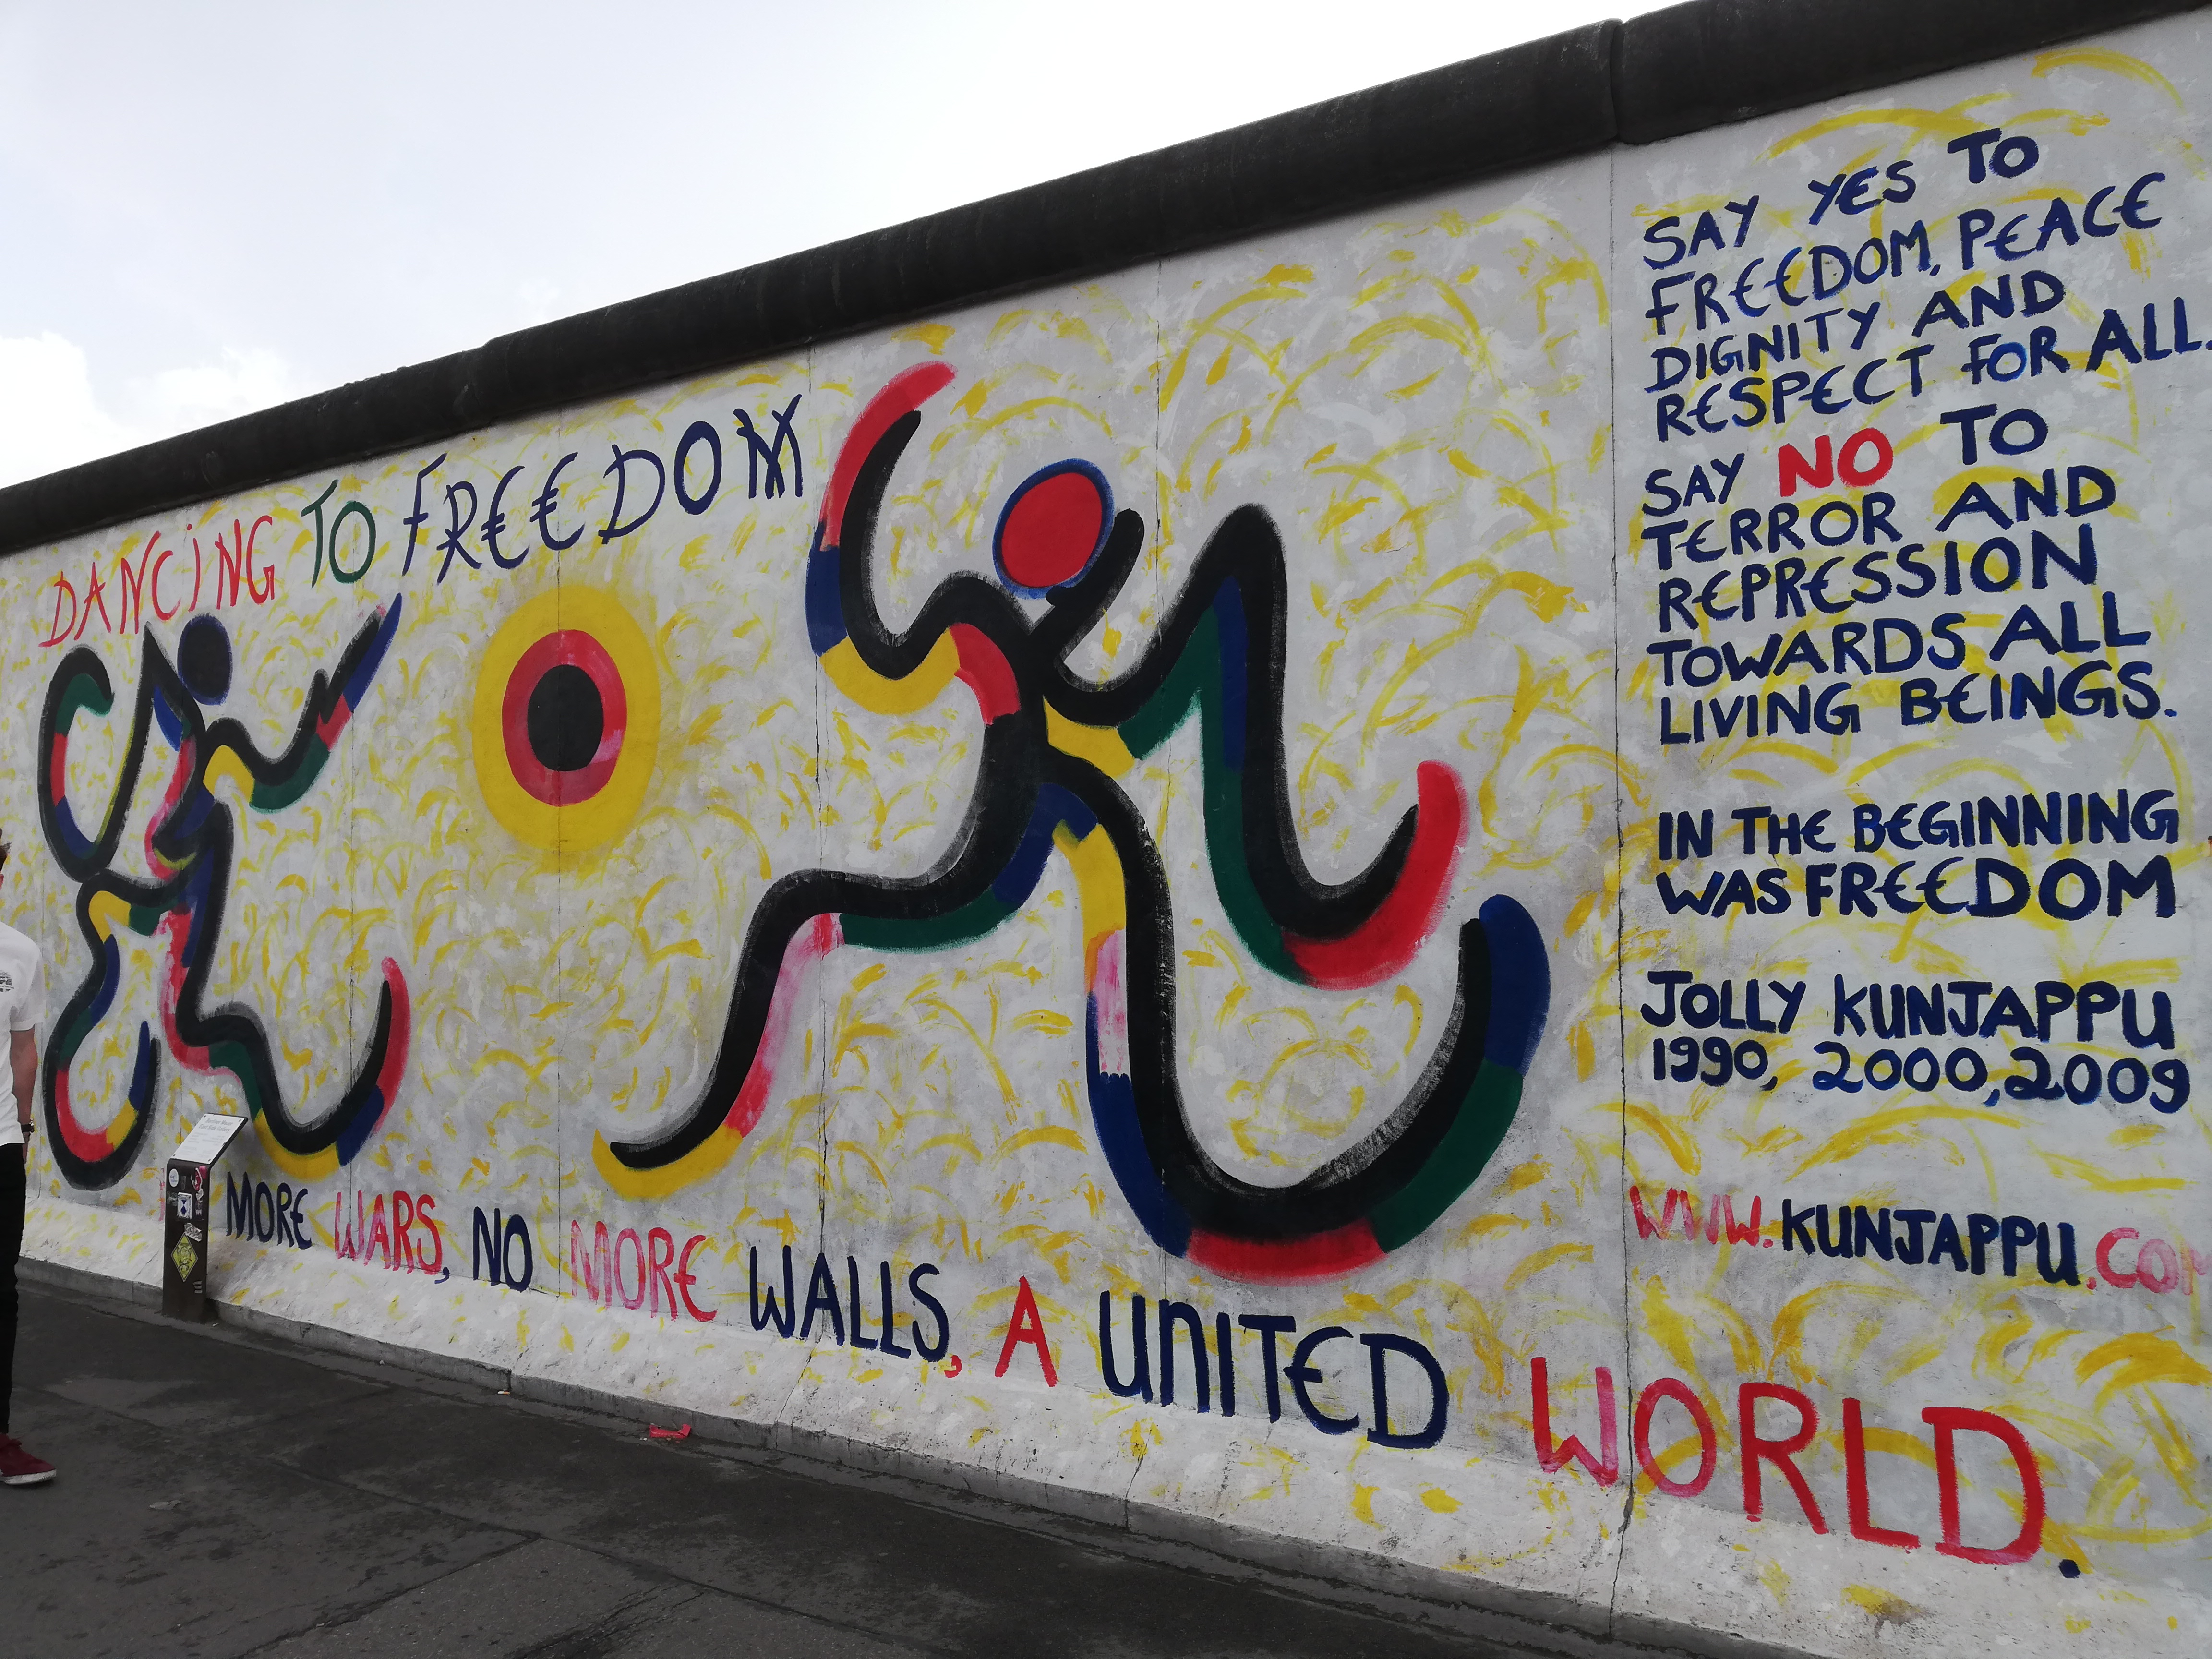 DANCING TO FREEDOM
MORE WARS, NO MORE WALLS, A UNITED WORLD.
SAY YES TO
FREEDOM, PEACE
DIGNITY AND
RESPECT FOR ALL.
SAY NO TO
TERROR AND
REPRESSION
TOWARDS ALL
LIVING BEINGS.
IN THE BEGINNING
WAS FREEDOM
JOLLY KUNJAPPU
1990, 2000, 2009